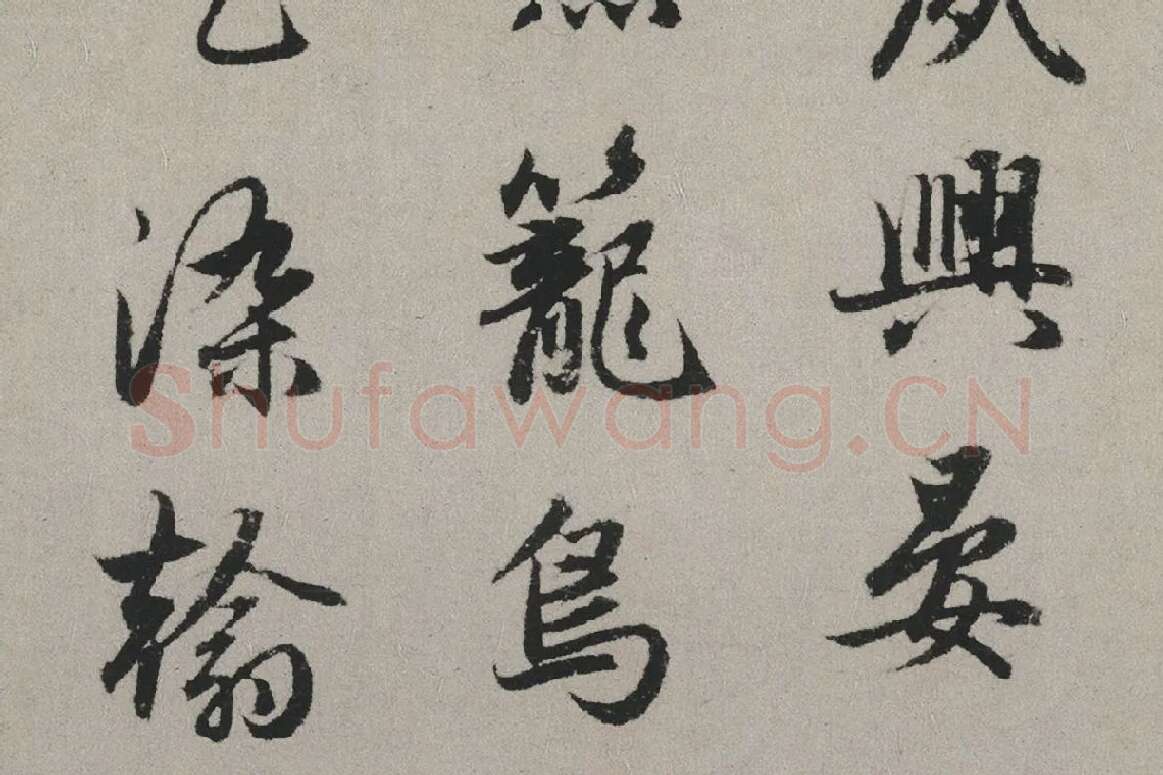 興晏
籠鳥
染翰
Shufawang.CN